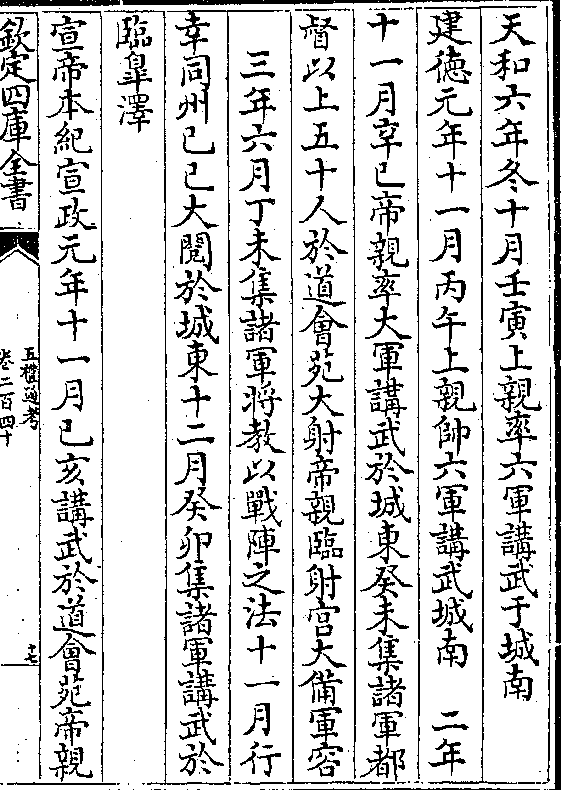 天和六年冬十月壬寅上親率六軍講武于城南
建徳元年十一月丙午上親帥六軍講武城南　二年
十一月辛巳帝親率大軍講武於城東癸未集諸軍都
督以上五十人於道會苑大射帝親臨射宫大備軍容
三年六月丁未集諸軍將教以戰陣之法十一月行
幸同州己巳大閲於城東十二月癸卯集諸軍講武於
臨臯澤
宣帝本紀宣政元年十一月己亥講武於道會苑帝親
欽定四庫全書
五禮通考
卷二百四十
十七